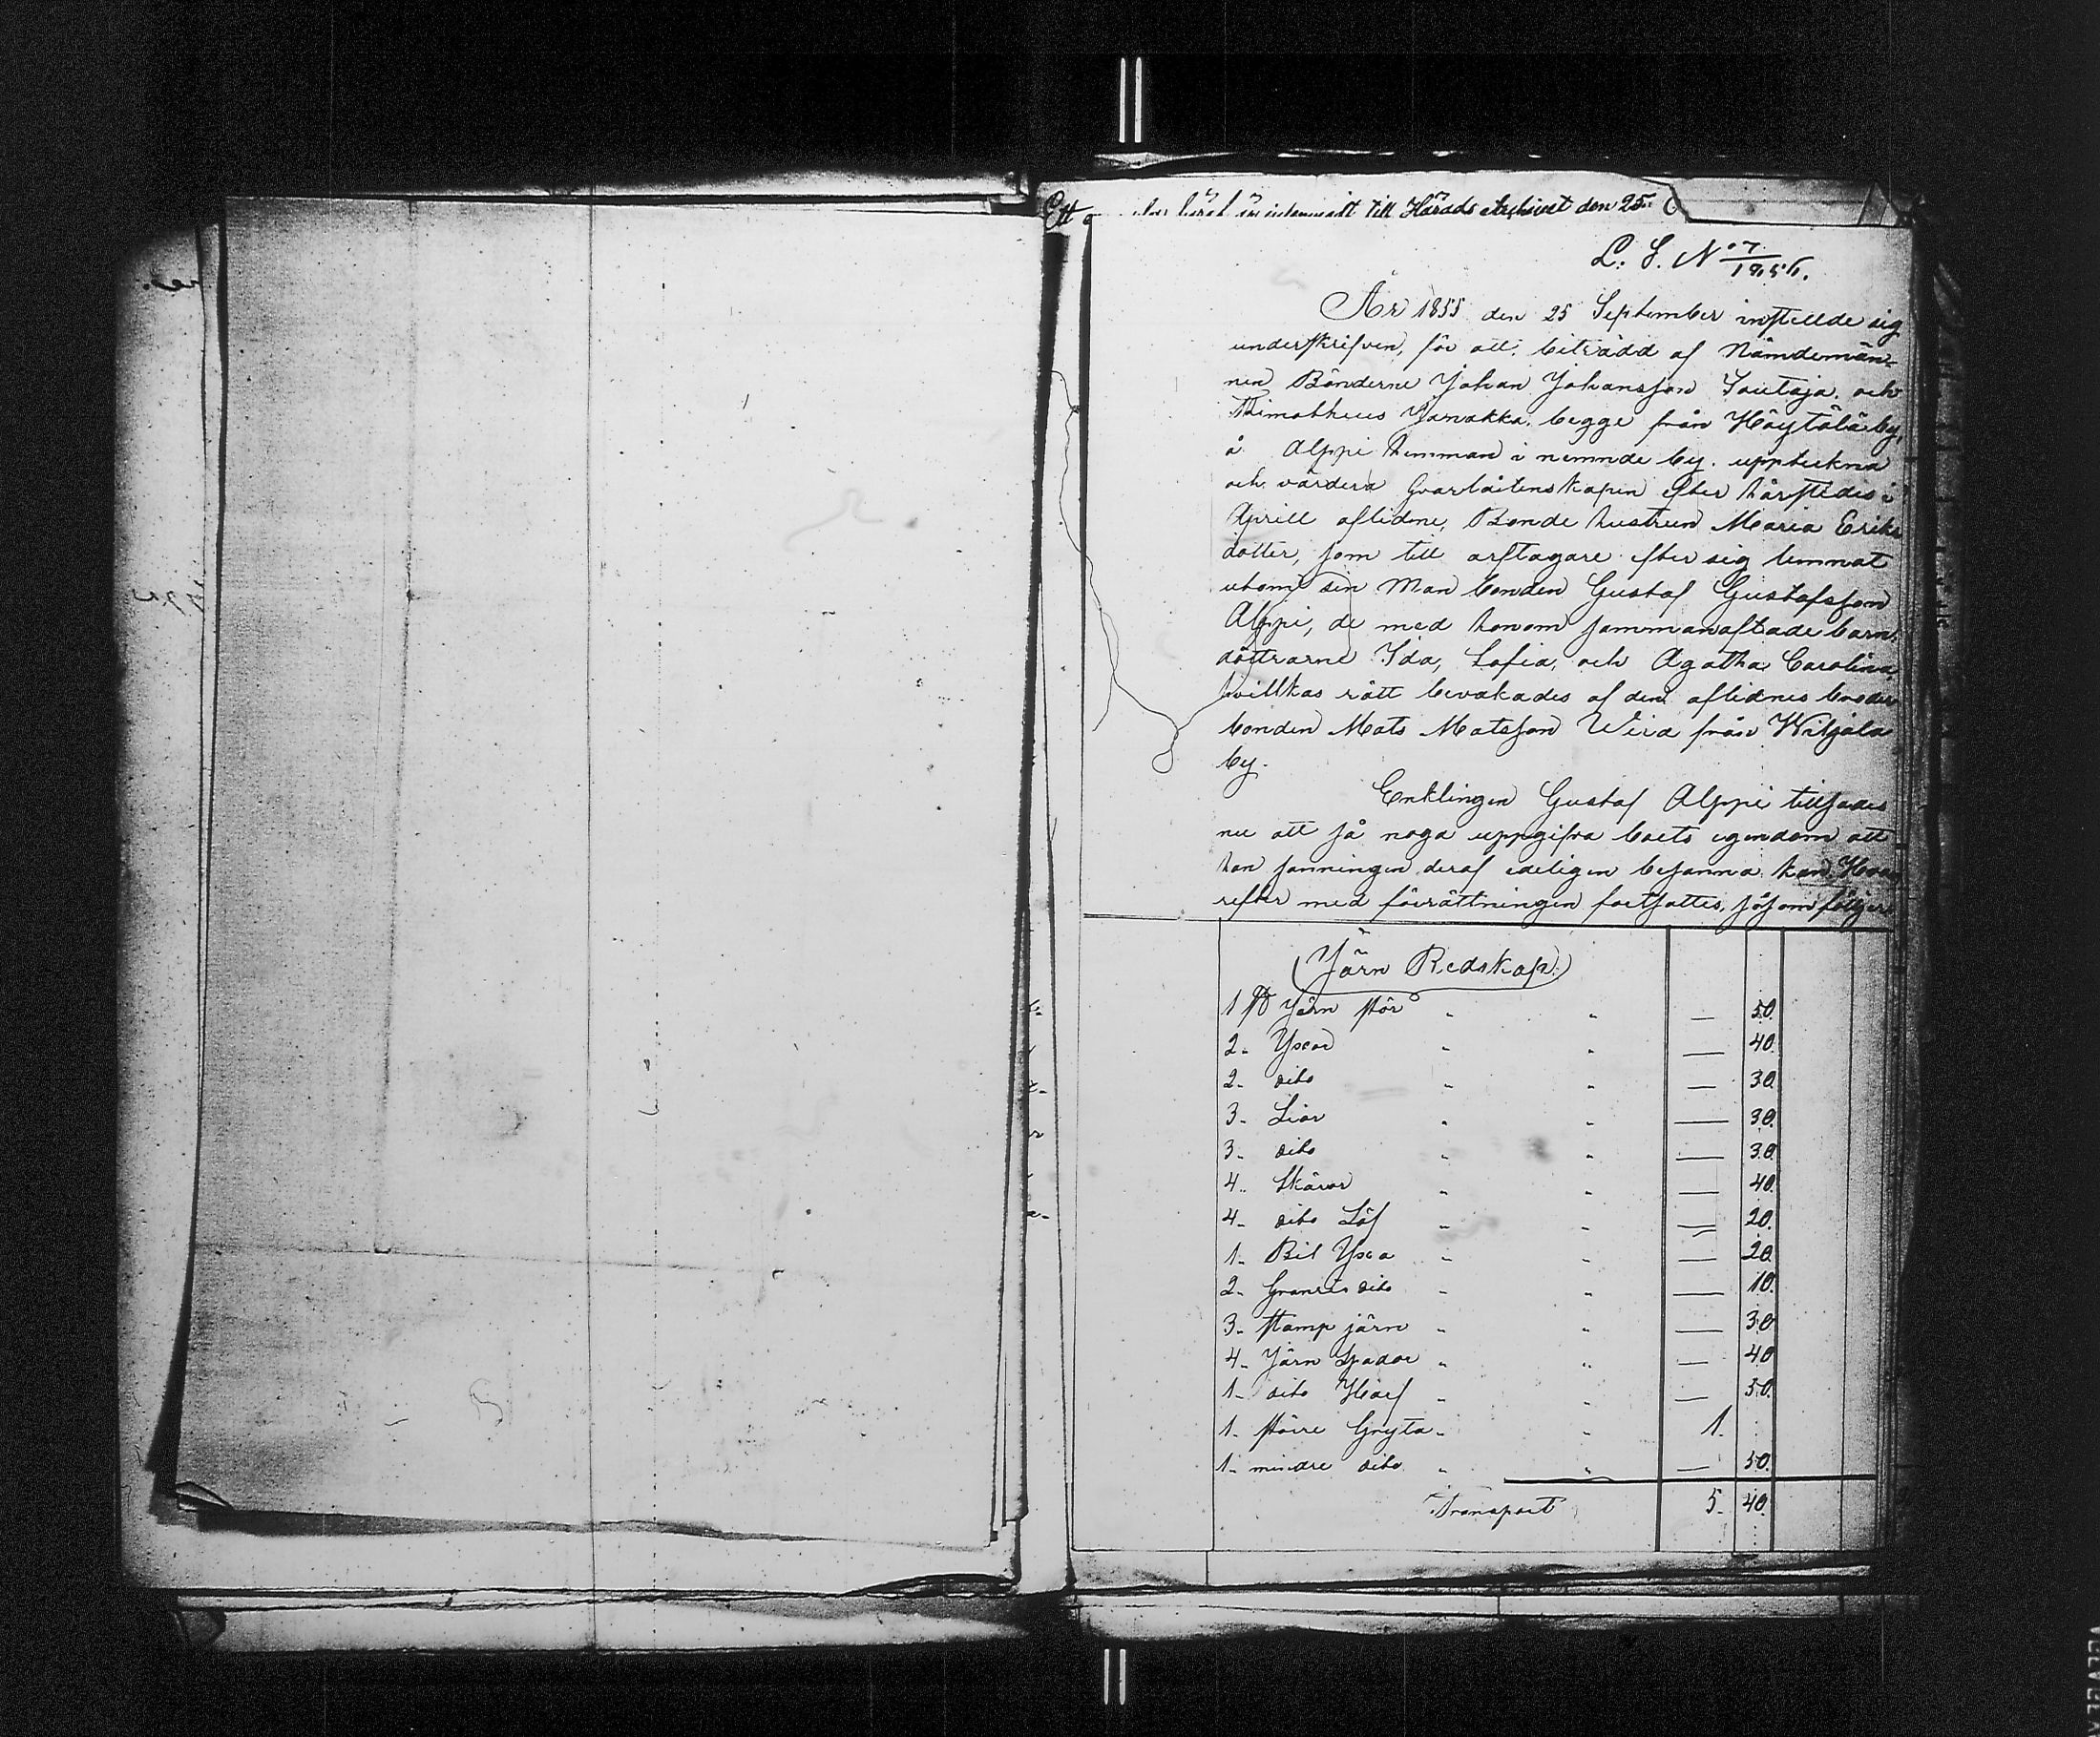 Ett härad är inlemnadt till Härads Archivet den 25
L. S. No 7/1856.
År 1855 den 25 September instellde sig
underskrifven, för att, biträdd af Nämdemän-
nen Bönderne Johan Johansson Sautaja, och
Thimotheus Yanakka, begge från Höytölä by,
å Alppi hemman i nemnde by, uppteckna
och värdera qvarlåtenskapen efter härstädes i
Aprill aflidne, Bonde hustrun Maria Eriks
dotter, som till arftagare efter sig lemnat
utom sin Man bonden Gustaf Gustafsson
Alppi, de med honom sammanaflade barn,
döttrarne Ida, Sofia, och Agatha Carolina
hvillkas rätt bevakades af den aflidnes broder
bonden Mats Matsson Wiia från Wiljala
by.
Enklingen Gustaf Alppi tillsades
nu att så noga uppgifva boets egendom att
han sanningen deraf edeligen besanna kan. Hvar
efter med förrättningen fortsattes, såsom följer
(Järn Redskap:)
1 st Järn stör " " — 50.
2- Yxor " " — 40.
2- dito " " — 30.
3- Liar " " — 30.
3- dito " " — 30.
4- Skäror " " — 40.
4- dito Löf " " — 20.
1- Bil Yxa " " — 20.
2- dito " " — 10.
3- stamp järn " " — 30
4- Järn Spador " " — 40
1- dito " " — 50.
1- större Gryta " " 1.
1- mindre dito " " — 50.
Transport 5. 40.